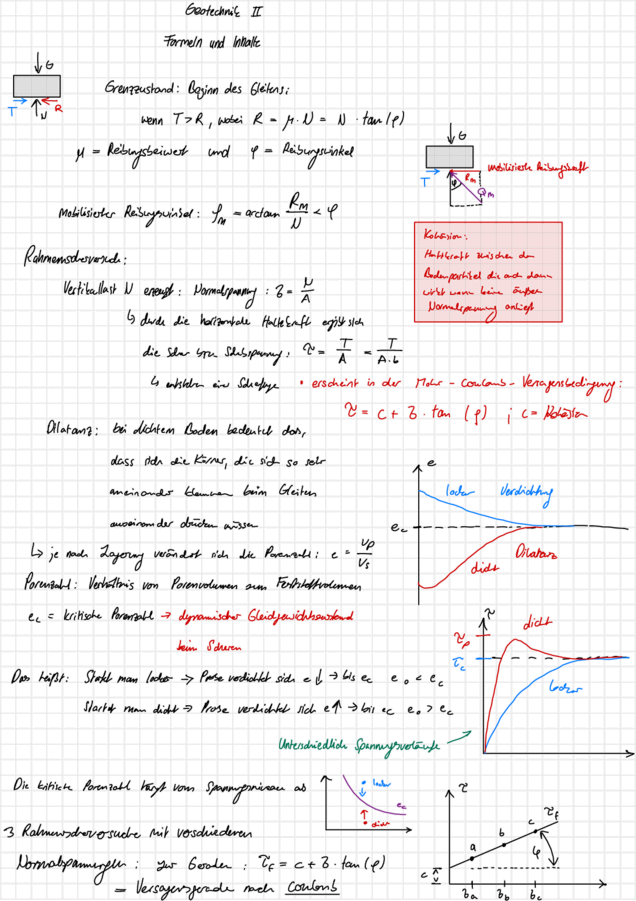 Geotechnik II
Formeln und Inhalte
G
T
N
R
Grenzzustand: Beginn des Gleitens:
wenn T > R, wobei R = μ · N = N · tan(φ)
μ = Reibungsbeiwert und φ = Reibungswinkel
G
T
φ
Rm
Qm
mobilisierte Reibungskraft
Mobilisierter Reibungswinkel: φm = arctan Rm/N < φ
Kohäsion:
Haftkraft zwischen den
Bodenpartikel die auch dann
wirkt wenn keine äußere
Normalspannung anliegt
Rahmenscherversuch:
Vertikallast N erzeugt: Normalspannung: σ = N/A
↳ durch die horizontale Haltekraft ergibt sich
die Scher bzw. Schubspannung: τ = T/A = T/A·b
↳ entstehen einer Scherfuge
• erscheint in der Mohr-Coulomb-Versagensbedingung:
τ = c + σ · tan (φ) ; c = Kohäsion
Dilatanz: bei dichtem Boden bedeutet das,
dass sich die Körner, die sich so sehr
aneinander klammern beim Gleiten
auseinander drücken müssen
↳ je nach Lagerung verändert sich die Porenzahl: e = Vp/Vs
Porenzahl: Verhältnis von Porenvolumen zum Feststoffvolumen
ec = kritische Porenzahl → dynamischer Gleichgewichtszustand
beim Scheren
e
locker Verdichtung
ec
Dilatanz
dicht
τ
dicht
τp
τc
locker
Das heißt: Startet man locker → Probe verdichtet sich e↓ → bis ec e0 < ec
Startet man dicht → Probe verdichtet sich e↑ → bis ec e0 > ec
Unterschiedliche Spannungsverläufe
Die kritische Porenzahl hängt vom Spannungsniveau ab
locker
ec
dicht
3 Rahmenscherversuche mit verschiedenen
Normalspannungen: zur Geraden: τf = c + σ · tan(φ)
= Versagensgerade nach Coulomb
τ
a
b
c
τf
φ
c
σa
σb
σc